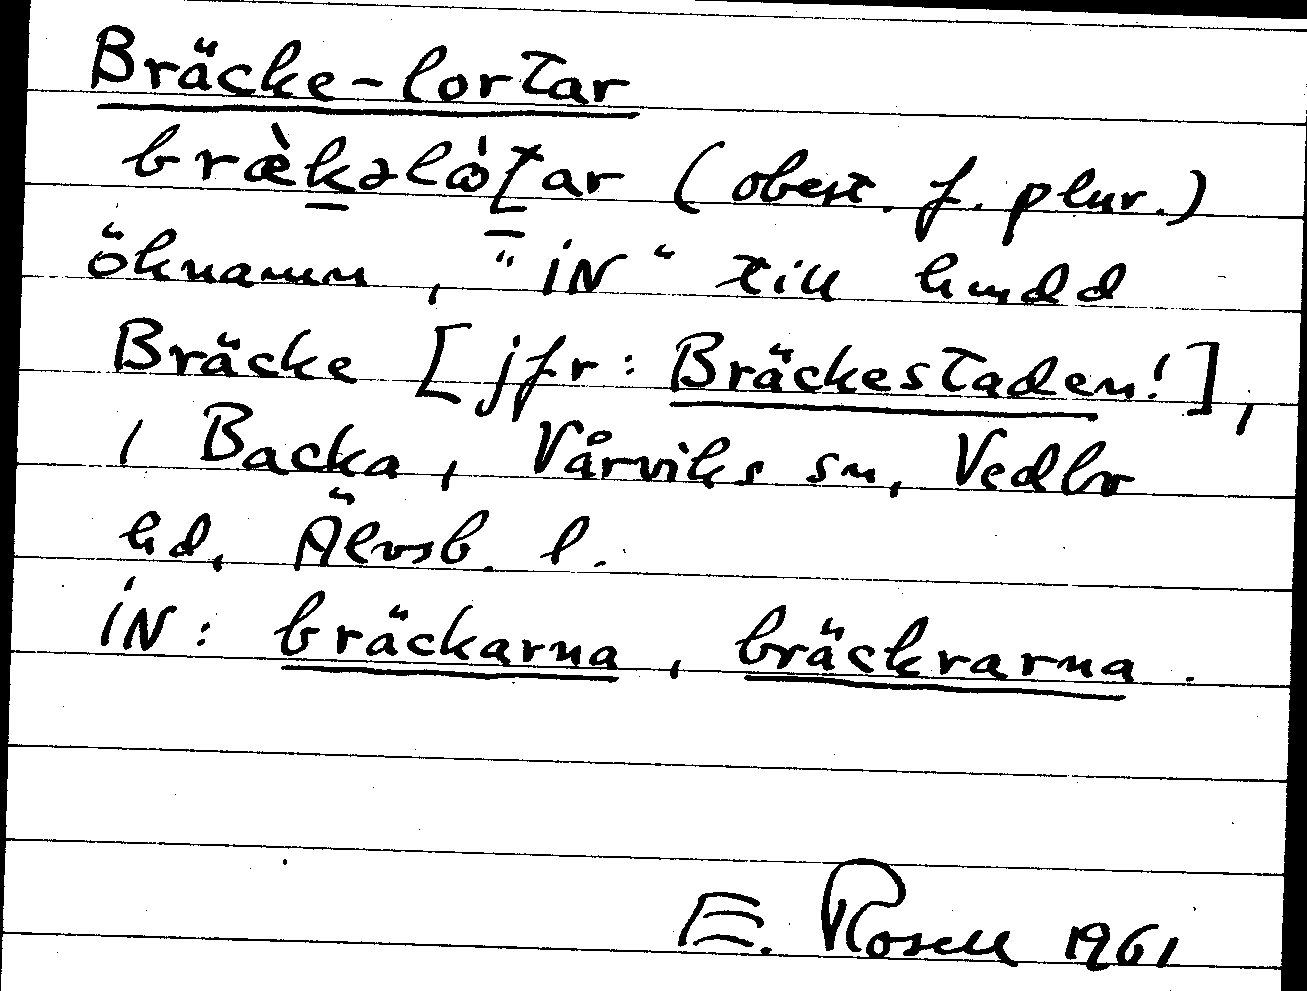 Bräcke-lortar
bræ̀kəlȯʈar (obest. f. plur.)
öknamn, "iN" till hmdd
Bräcke [jfr: Bräckestaden!],
i Backa, Vårviks sn, Vedbo
hd, Älvsb. l.
iN: bräckarna, bräckrarna.
E. Rosell 1961